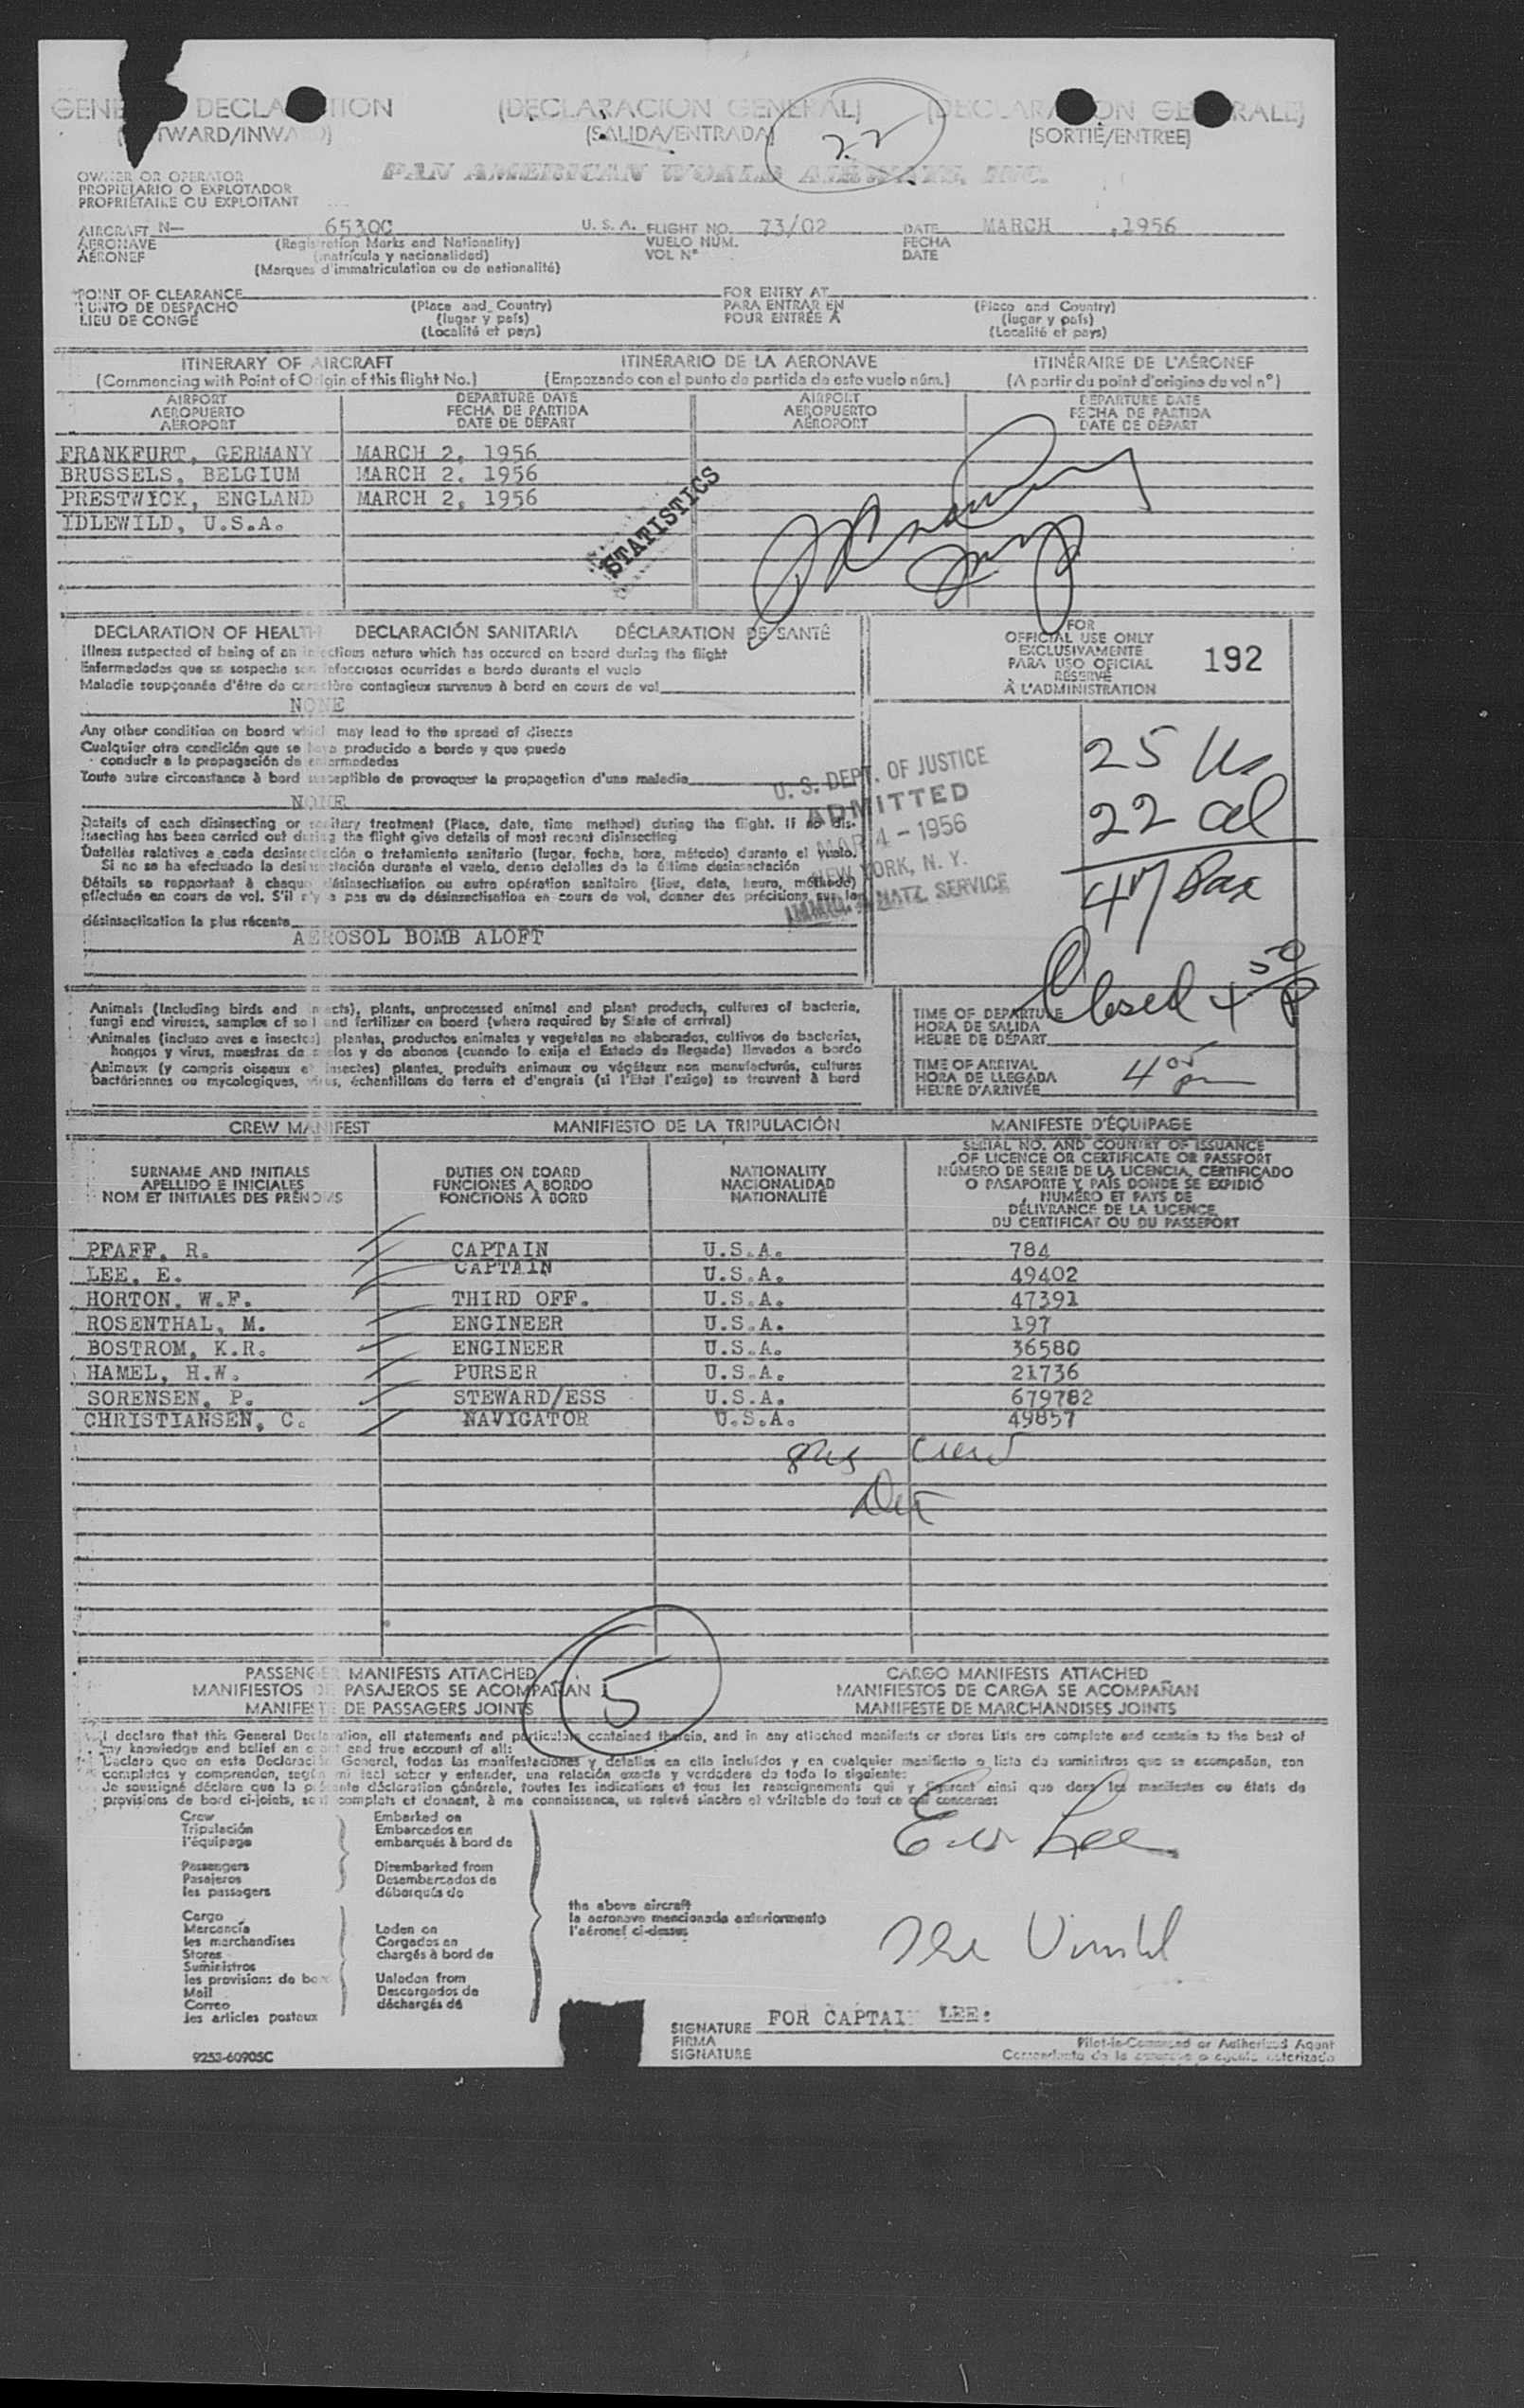 GENE DECLA TION (DECLARACION GENERAL) (DECLARA ON GE RALE)
TWARD/INWARD) (SALIDA/ENTRADA) (SORTIÉ/ENTREE)
22
PAN AMERICAN WORLD AIRWAYS, INC.
OWNER OR OPERATOR
PROPIETARIO O EXPLOTADOR
PROPRIÉTAIRE OU EXPLOITANT
AIRCRAFT N— 6530C U. S. A. FLIGHT NO. 73/02 DATE MARCH ,1956
AERONAVE (Registration Marks and Nationality) VUELO NÚM. FECHA
AÉRONEF (matrícula y nacionalidad) VOL N° DATE
(Marques d'immatriculation ou de nationalité)
POINT OF CLEARANCE FOR ENTRY AT
PUNTO DE DESPACHO (Place and Country) PARA ENTRAR EN (Place and Country)
LIEU DE CONGÉ (lugar y país) POUR ENTRÉE À (lugar y país)
(Localité et pays) (Localité et pays)
ITINERARY OF AIRCRAFT ITINERARIO DE LA AERONAVE ITINÉRAIRE DE L'AÉRONEF
(Commencing with Point of Origin of this flight No.) (Empezando con el punto de partida de este vuelo núm.) (A partir du point d'origine du vol n°)
AIRPORT DEPARTURE DATE AIRPORT DEPARTURE DATE
AEROPUERTO FECHA DE PARTIDA AEROPUERTO FECHA DE PARTIDA
AÉROPORT DATE DE DÉPART AÉROPORT DATE DE DÉPART
FRANKFURT, GERMANY MARCH 2, 1956
BRUSSELS, BELGIUM MARCH 2, 1956
PRESTWICK, ENGLAND MARCH 2, 1956
IDLEWILD, U.S.A.
STATISTICS
DECLARATION OF HEALTH DECLARACIÓN SANITARIA DÉCLARATION DE SANTÉ
Illness suspected of being of an infectious nature which has occured on board during the flight
Enfermedades que se sospecha son infecciosas ocurridas a bordo durante el vuelo
Maladie soupçonnée d'être de caractère contagieux survenue à bord en cours de vol
NONE
FOR
OFFICIAL USE ONLY
EXCLUSIVAMENTE
PARA USO OFICIAL
RÉSERVÉ
À L'ADMINISTRATION
192
Any other condition on board which may lead to the spread of disease
Cualquier otra condición que se haya producido a bordo y que puede
conducir a la propagación de enfermedades
Toute autre circonstance à bord susceptible de provoquer la propagation d'une maladie
NONE
25 Us
22 al
47 Pax
Closed 4 50 P
U. S. DEPT. OF JUSTICE
ADMITTED
MAR 4 - 1956
NEW YORK, N. Y.
IMMIG. & NATZ. SERVICE
Details of each disinsecting or sanitary treatment (Place, date, time method) during the flight. If no dis-
insecting has been carried out during the flight give details of most recent disinsecting
Detalles relativos a cada desinsectación o tratamiento sanitario (lugar, fecha, hora, método) durante el vuelo.
Si no se ha efectuado la desinsectación durante el vuelo, dense detalles de la última desinsectación
Détails se rapportant à chaque désinsectisation ou autre opération sanitaire (lieu, date, heure, méthode)
effectuée en cours de vol. S'il n'y a pas eu de désinsectisation en cours de vol, donner des précisions sur la
désinsectisation la plus récente
AEROSOL BOMB ALOFT
Animals (Including birds and insects), plants, unprocessed animal and plant products, cultures of bacteria,
fungi and viruses, samples of soil and fertilizer on board (where required by State of arrival)
Animales (incluso aves e insectos) plantas, productos animales y vegetales no elaborados, cultivos de bacterias,
hongos y virus, muestras de suelos y de abonos (cuando lo exija el Estado de llegada) llevados a bordo
Animaux (y compris oiseaux et insectes) plantes, produits animaux ou végéteux non manufacturés, cultures
bactériennes ou mycologiques, virus, échantillons de terre et d'engrais (si l'État l'exige) se trouvent à bord
TIME OF DEPARTURE
HORA DE SALIDA
HEURE DE DÉPART
TIME OF ARRIVAL
HORA DE LLEGADA 4 05 pm
HEURE D'ARRIVÉE
CREW MANIFEST MANIFIESTO DE LA TRIPULACIÓN MANIFESTE D'ÉQUIPAGE
SURNAME AND INITIALS DUTIES ON BOARD NATIONALITY SERIAL NO. AND COUNTRY OF ISSUANCE
APELLIDO E INICIALES FUNCIONES A BORDO NACIONALIDAD OF LICENCE OR CERTIFICATE OR PASSPORT
NOM ET INITIALES DES PRÉNOMS FONCTIONS À BORD NATIONALITÉ NÚMERO DE SERIE DE LA LICENCIA, CERTIFICADO
O PASAPORTE Y PAÍS DONDE SE EXPIDIÓ
NUMÉRO ET PAYS DE
DÉLIVRANCE DE LA LICENCE,
DU CERTIFICAT OU DU PASSEPORT
PFAFF, R. CAPTAIN U.S.A. 784
LEE, E. CAPTAIN U.S.A. 49402
HORTON, W.F. THIRD OFF. U.S.A. 47391
ROSENTHAL, M. ENGINEER U.S.A. 197
BOSTROM, K.R. ENGINEER U.S.A. 36580
HAMEL, H.W. PURSER U.S.A. 21736
SORENSEN, P. STEWARD/ESS U.S.A. 679782
CHRISTIANSEN, C. NAVIGATOR U.S.A. 49857
crew
5
PASSENGER MANIFESTS ATTACHED CARGO MANIFESTS ATTACHED
MANIFIESTOS DE PASAJEROS SE ACOMPAÑAN MANIFIESTOS DE CARGA SE ACOMPAÑAN
MANIFESTE DE PASSAGERS JOINTS MANIFESTE DE MARCHANDISES JOINTS
I declare that this General Declaration, all statements and particulars contained therein, and in any attached manifests or stores lists are complete and contain to the best of
my knowledge and belief an exact and true account of all:
Declaro que en esta Declaración General, todas las manifestaciones y detalles en ella incluídos y en cualquier manifiesto o lista de suministros que se acompañan, son
completos y comprenden, según mi leal saber y entender, una relación exacta y verdadera de todo lo siguiente:
Je soussigné déclare que la présente déclaration générale, toutes les indications et tous les renseignements qui y figurent ainsi que dans les manifestes ou états de
provisions de bord ci-joints, sont complets et donnent, à ma connaissance, un relevé sincère et véritable de tout ce qui concerne:
Crew Embarked on
Tripulación Embarcados en
l'équipage embarqués à bord de
Passengers Disembarked from
Pasajeros Desembarcados de
les passagers débarqués de
Cargo
Mercancía Laden on
les marchandises Cargados en
Stores chargés à bord de
Suministros
les provisions de bord Unladen from
Mail Descargados de
Correo déchargés de
les articles postaux
the above aircraft
la aeronave mencionada anteriormente
l'aéronef ci-dessus
E. W. Lee
SIGNATURE FOR CAPTAIN LEE:
FIRMA Pilot-in-Command or Authorized Agent
SIGNATURE Comandante de la aeronave o agente autorizado
9253-60905C